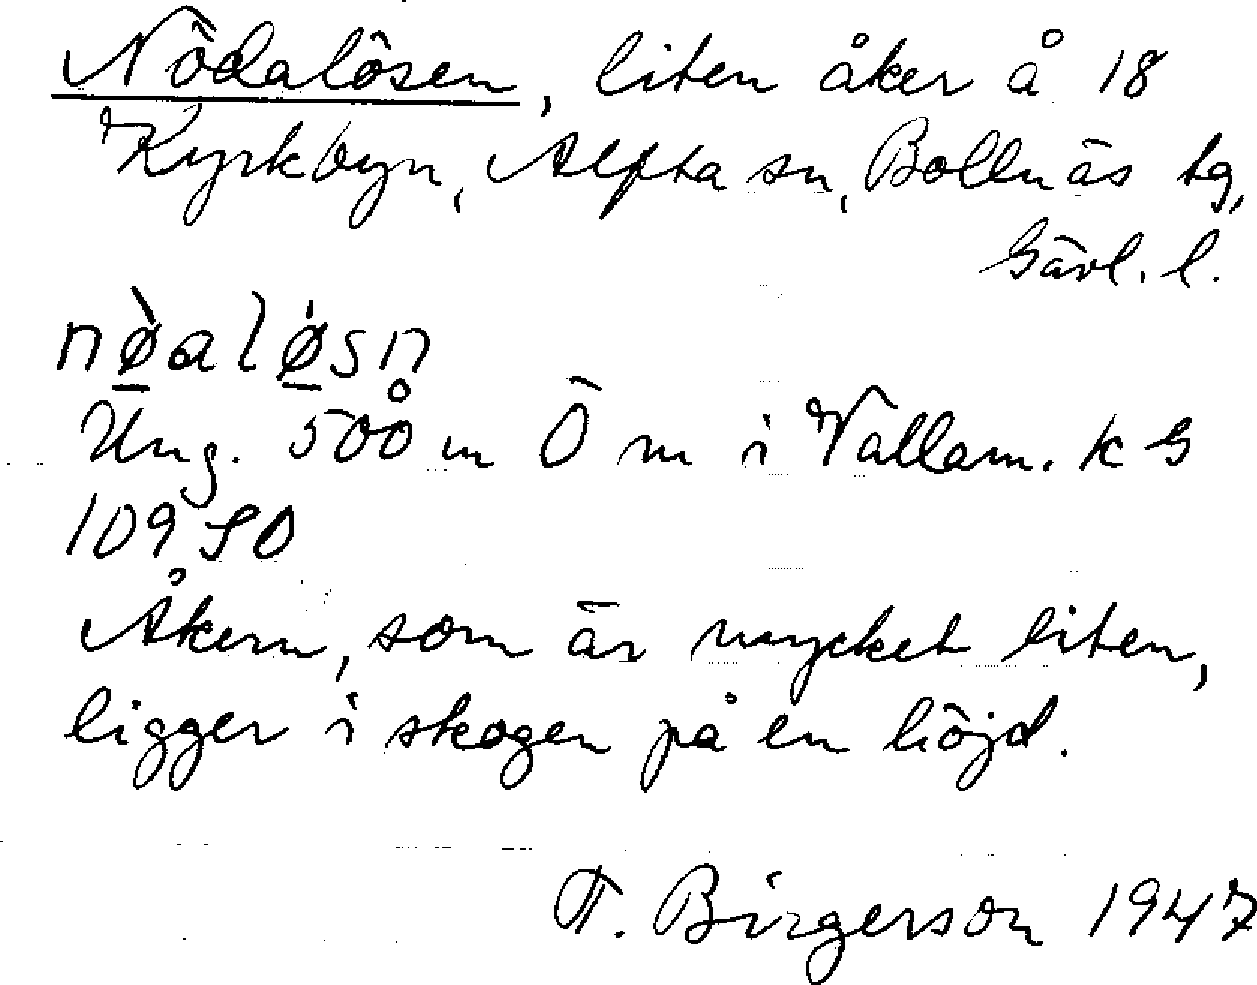 Nödalösen, liten åker å 18
Kyrkbyn, Alfta sn, Bollnäs tg,
Gävl. l.
nø̀aløsn̥
Ung. 500 m Ö m i Vallam. k G
109 SO
Åkern, som är mycket liten,
ligger i skogen på en höjd.
T. Birgerson 1947